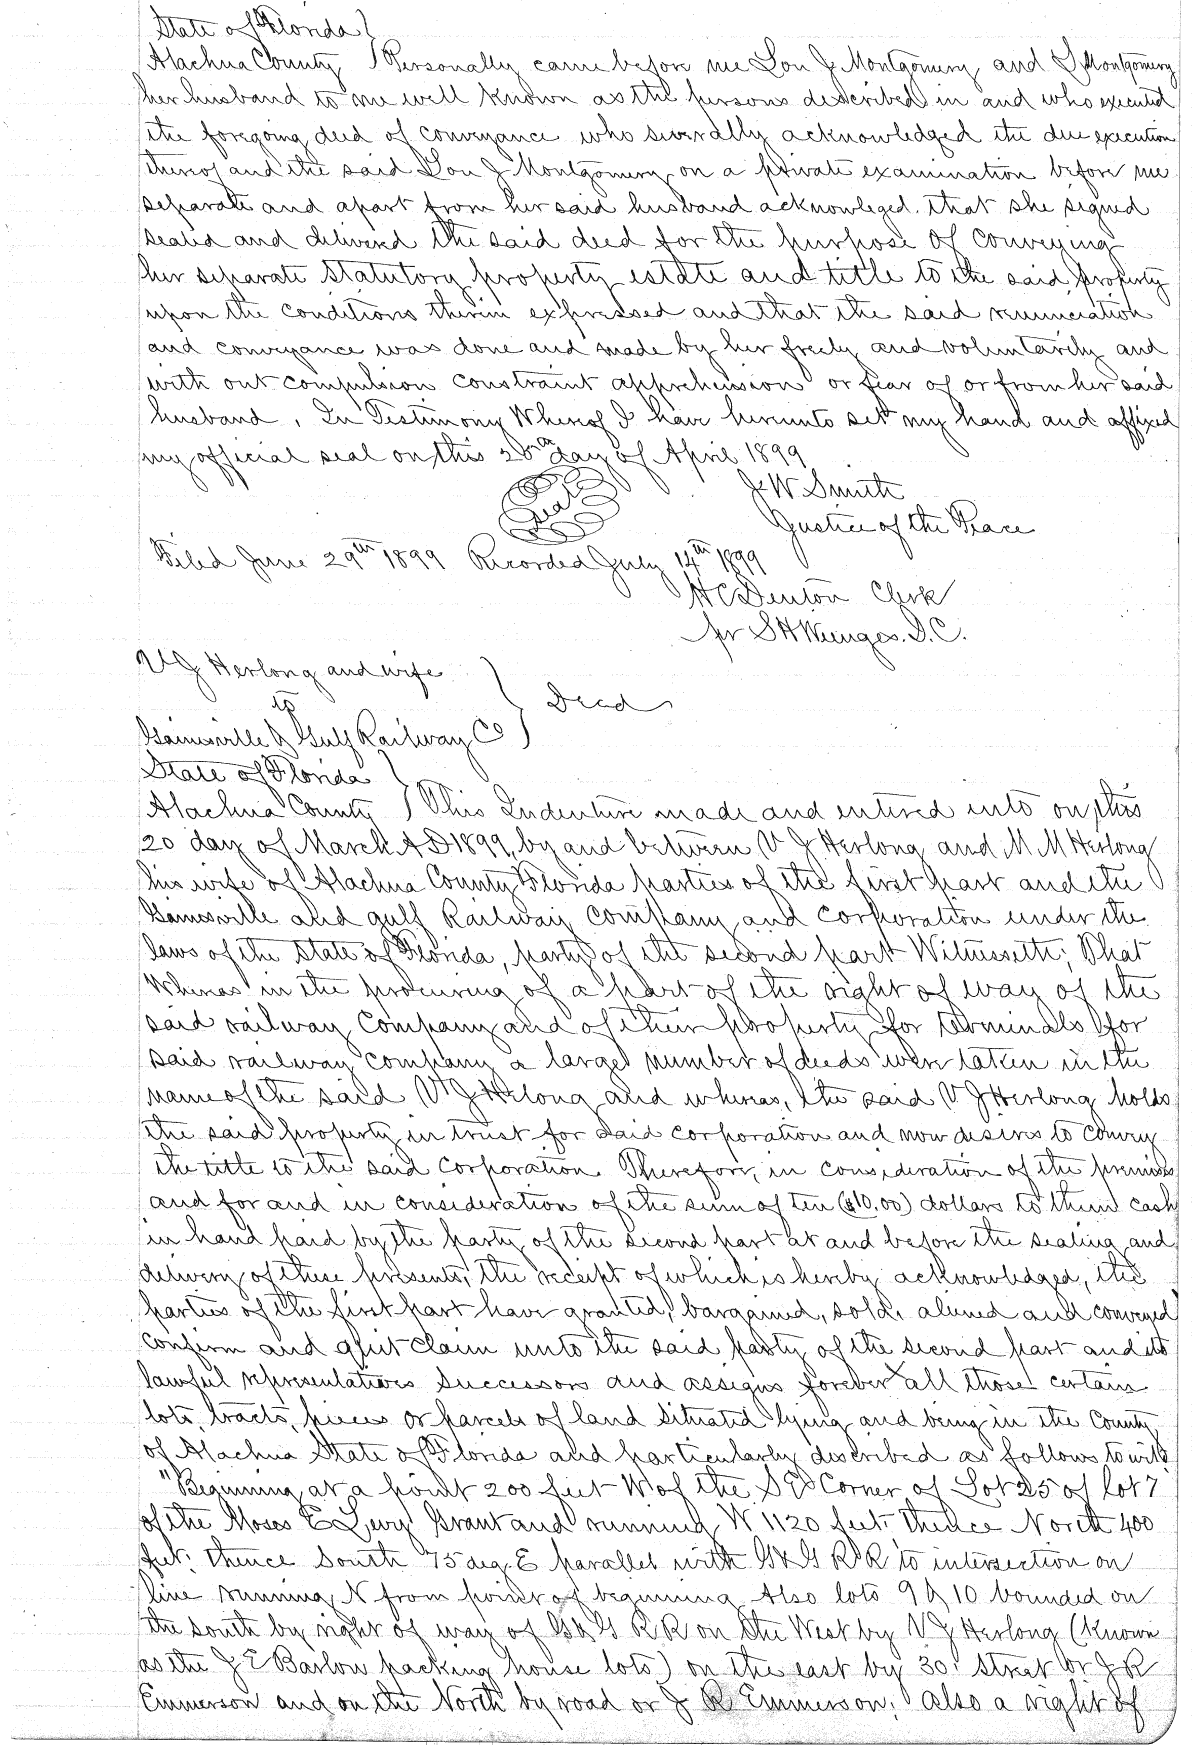 State of Florida }
Alachua County } Personally came before me Lou J Montgomery and S Montgomery
her husband to me well known as the persons described in and who executed
the foregoing deed of conveyance who severally acknowledged the due execution
thereof and the said Lou J Montgomery on a private examination before me
separate and apart from her said husband acknowleged. that she signed
sealed and delivered the said deed for the purpose of conveying
her separate statutory property estate and title to the said property
upon the conditions therein expressed and that the said renunciation
and conveyance was done and made by her freely and voluntarily and
with out compulsion constraint apprehension or fear of or from her said
husband. In Testimony Whereof I have hereunto set my hand and affixed
my official seal on this 28th day of April 1899
Seal
J W Smith
Justice of the Peace
Filed June 29th 1899 Recorded July 14th 1899
H C Denton Clerk
pr S H Wienges. D. C.
V J Herlong and wife
to } Deed
Gainesville & Gulf Railway Co
State of Florida }
Alachua County } This Indenture made and entired into on this
20 day of March A D 1899, by and between V J Herlong and M M Herlong
his wife of Alachua County Florida parties of the first part and the
Gainesville and gulf Railway Company and corporation under the
laws of the State of Florida, party of the second part Witnesseth; That
Whereas in the procuring of a part of the right of way of the
said railway Company and of their property for terminals for
said railway company a large number of deeds were taken in the
name of the said V J Herlong and whereas, the said V J Herlong holds
the said property in trust for said corporation and now desires to convey
the title to the said corporation Therefore, in consideration of the premises
and for and in consideration of the sum of ten ($10.00) dollars to them cash
in hand paid by the party of the second part at and before the sealing and
delivery of these presents, the receipt of which is hereby acknowledged, the
parties of the first part have granted, bargained, sold, aliened and conveyed
confirm and quit claim unto the said party of the second part and its
lawful representatives successors and assigns forever all those certain
lots, tracts, pieces or parcels of land situated lying and being in the County
of Alachua State of Florida and particularly described as follows to wit:
"Beginning at a point 200 feet W of the S E Corner of Lot 25 of lot 7
of the Moses E Levy Grant and running W 1120 feet. thence North 400
feet: thence South 75 deg. E parallel with G & G R R to intersection on
line running N from point of beginning Also lots 9 & 10 bounded on
the south by right of way of G & G R R on the West by V J Herlong (Known
as the J E Barlow packing house lots) on the east by 30' Street or J R
Emmerson and on the North by road or J R Emmerson; also a right of